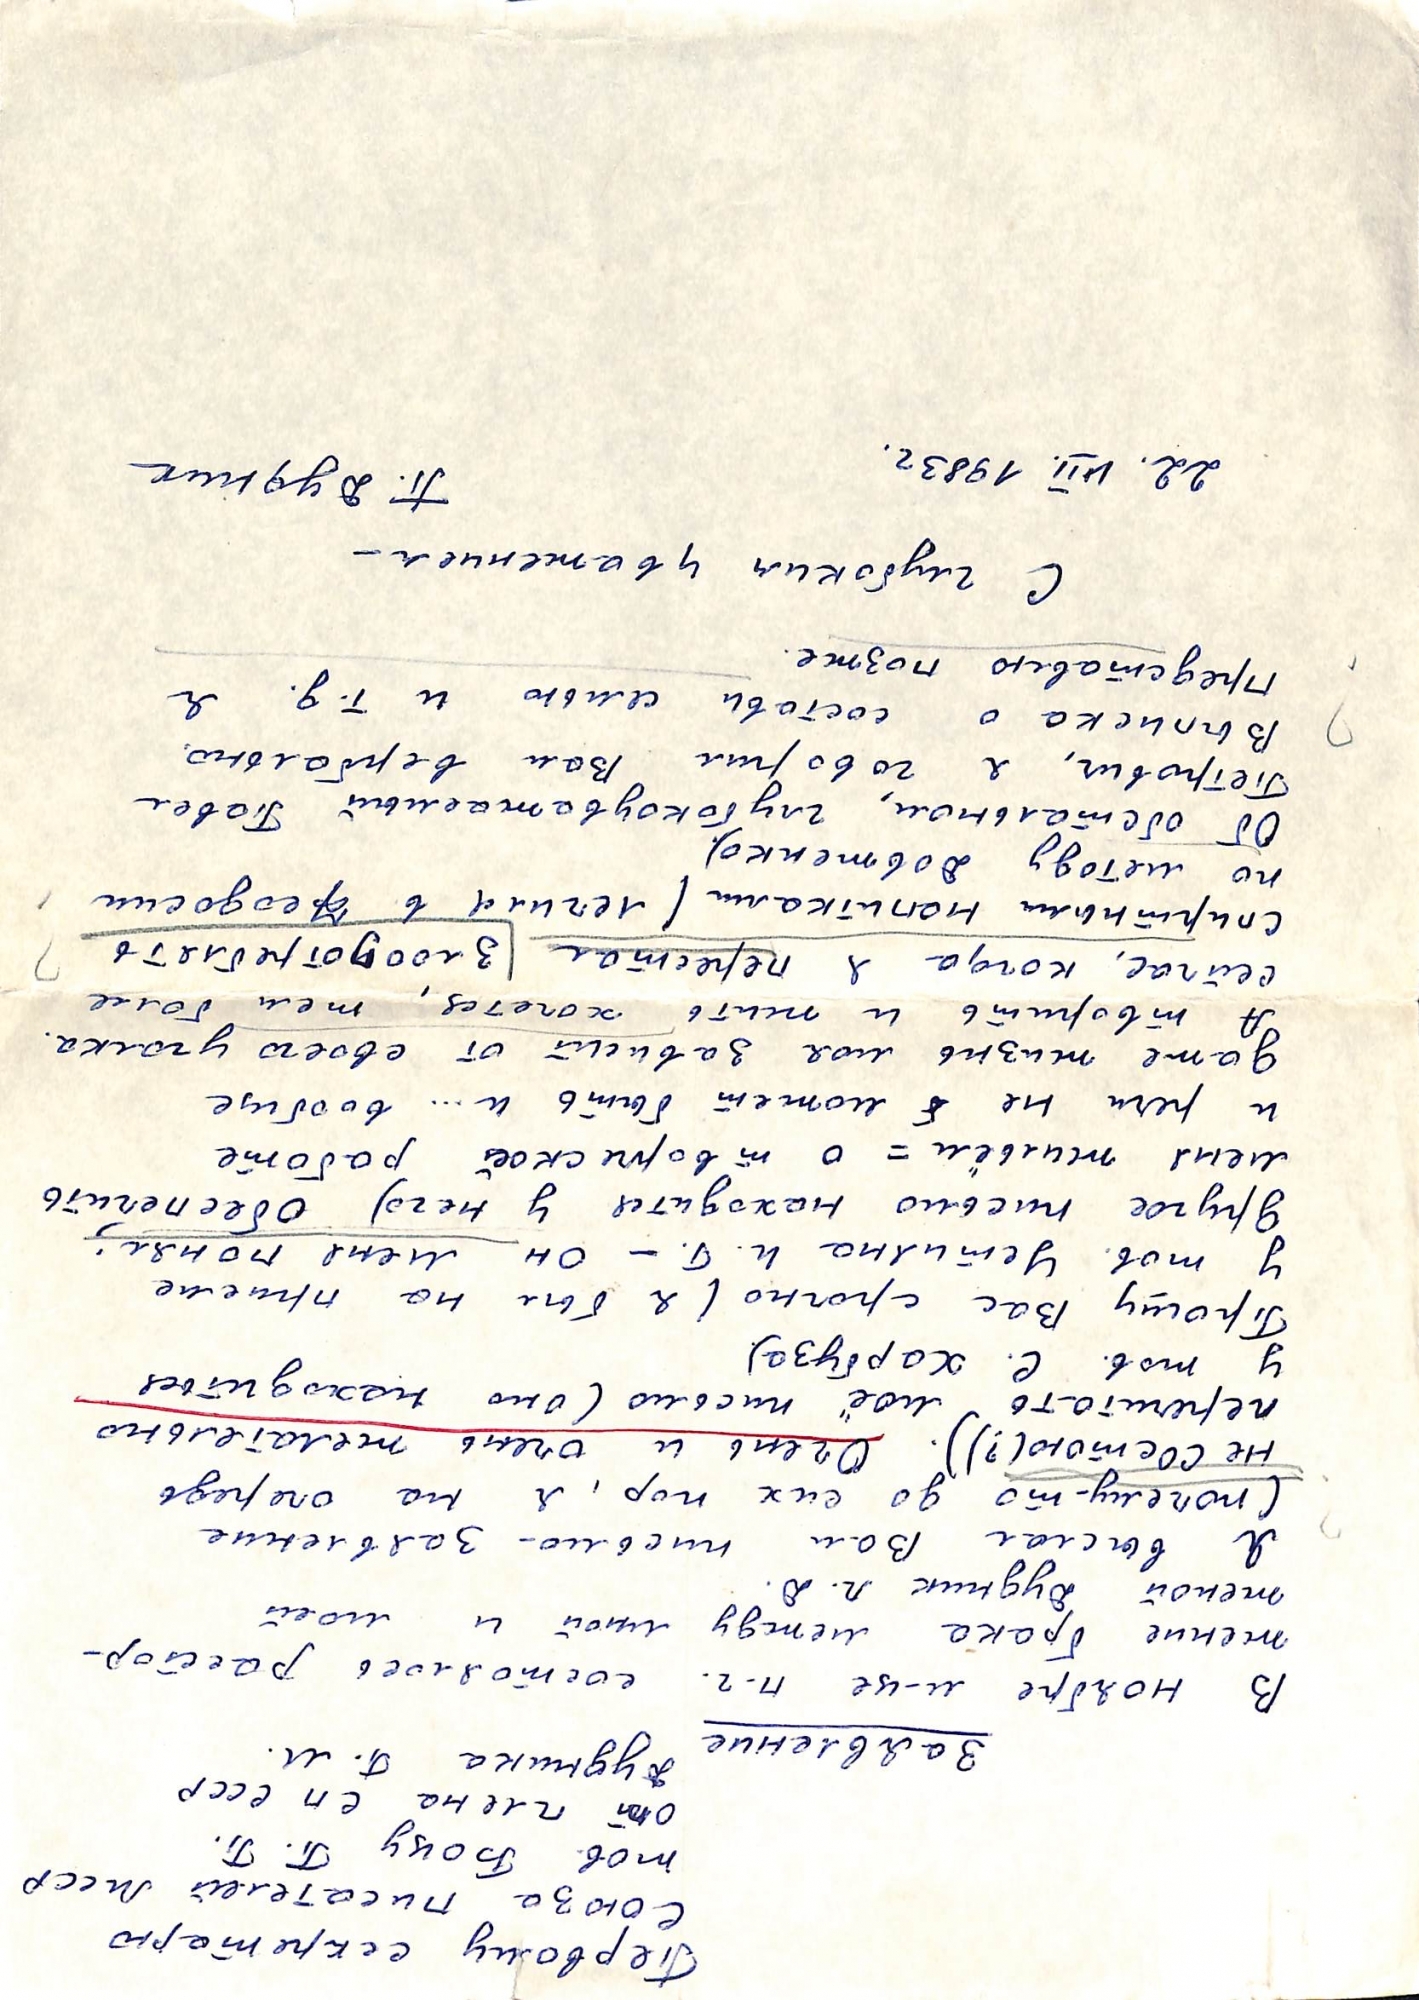 Первому секретарю
Союза писателей МССР
тов. Боцу П. П.
от члена СП СССР
Дудника П. М.
Заявление
В ноябре м-це п.г. состоялось растор-
жение брака между мной и моей
женой Дудник Л. Д.
Я выслал Вам письмо-заявление
(почему-то до сих пор, я на очередь
не состою(?)). Очень и очень желательно
перечитать моё письмо (оно находится
у тов. С. Харбуза).
Прошу Вас срочно (я был на приёме
у тов. Устияна И. Г. – он меня понял;
другое письмо находится у него) обеспечить
меня жильём = о творческой работе
и речи не может быть и... вообще
даже жизнь моя зависит от своего уголка.
А творить и жить хочется, тем более
сейчас, когда я перестал злоупотреблять
спиртными напитками (лечился в Феодосии
по методу Довженко).
Об остальном, глубокоуважаемый Павел
Петрович, я говорил Вам вербально.
Выписка о составе семью и т.д. я
представлю позже.
С глубоким уважением –
22. VII. 1983г. П. Дудник